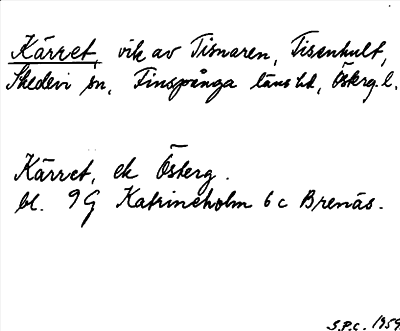 Kärret, vik av Tisnaren, Tisenhult,
Skedevi sn, Finspånga läns hd, Österg. l.
Kärret, ek Österg.
bl. 9G Katrineholm 6c Brenäs.
S.P.C. 1959